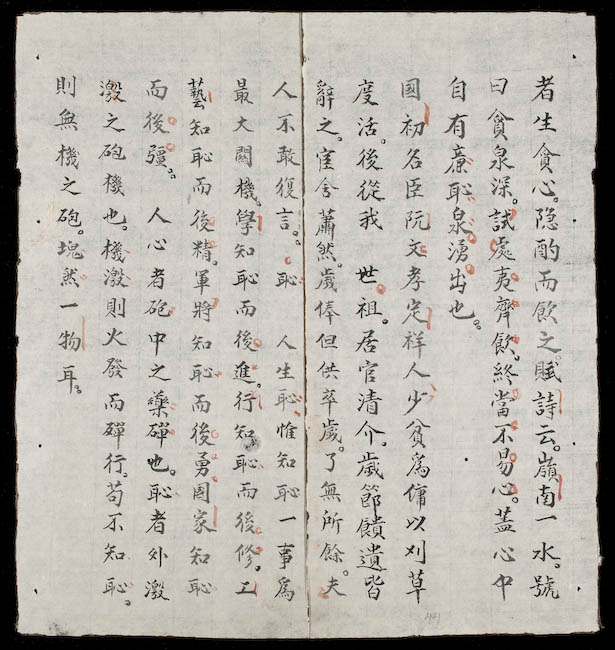 者生貪心。隐酌而飲之。賦詩云。嶺南一水。號
曰貪泉深。試處夷齊飲。終當不易心。蓋心中
自有廉恥泉湧出也。
國初名臣阮文孝定祥人少貧爲傭以刈草
度活。後從我 世祖。居官清介。歲節饋遺皆
辭之。宦舍蕭然。歲俸但供卒歲。了無所餘。夫
人不敢復言。 恥 人生恥。惟知恥一事爲
最大關機。學知恥而後進。行知恥而後修。工
藝知恥而後精。軍將知恥而後勇。國家知恥
而後彊。 人心者砲中之藥磾也。恥者外激
激之砲機也。機激則火發而磾行。苟不知恥。
則無機之砲。塊然一物耳。